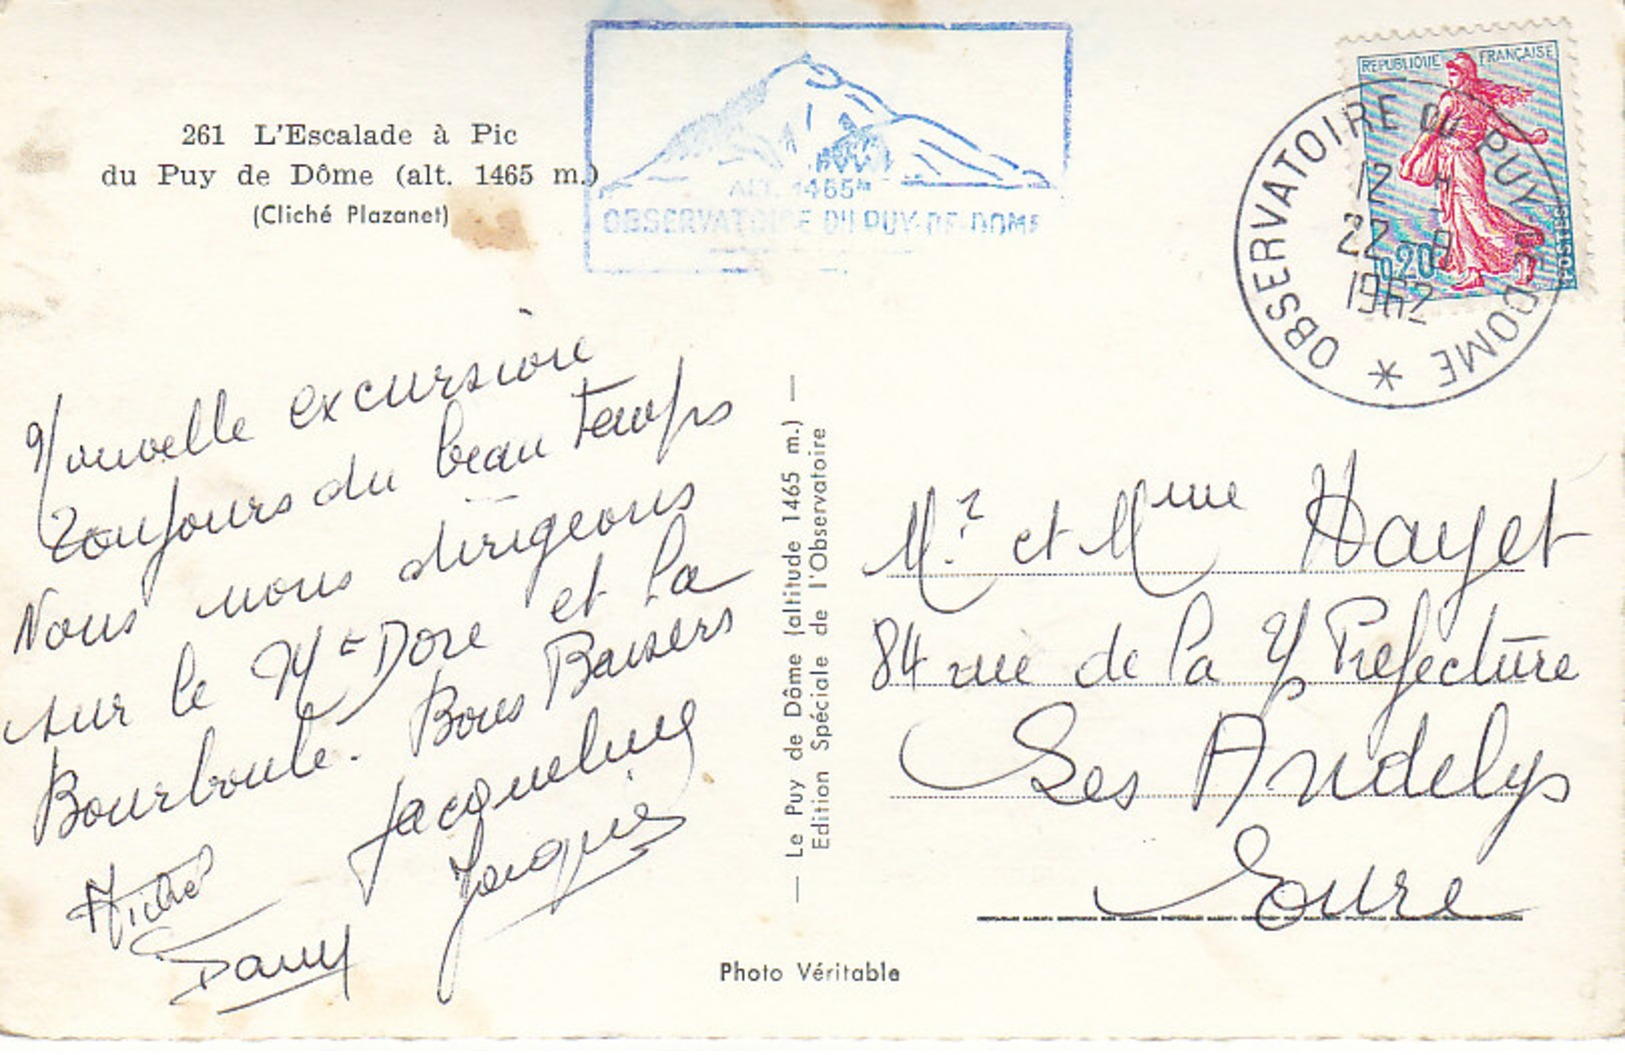 261 L'Escalade à Pic
du Puy de Dôme (alt. 1465 m.)
(Cliché Plazanet)
ALT. 1465m
OBSERVATOIRE DU PUY-DE-DOME
REPUBLIQUE FRANÇAISE
0,20
POSTES
OBSERVATOIRE DU PUY-DE-DOME *
12 H
22 - 8
1962
Nouvelle excursion
Toujours du beau temps
Nous nous dirigeons
sur le Mt Dore et La
Bourboule. Bons Baisers
Jacqueline
Jacques
Michel
Dany
— Le Puy de Dôme (altitude 1465 m.) —
Edition Spéciale de l'Observatoire
Mr et Mme Hayet
84 rue de la S/ Prefecture
Les Andelys
Eure
Photo Véritable